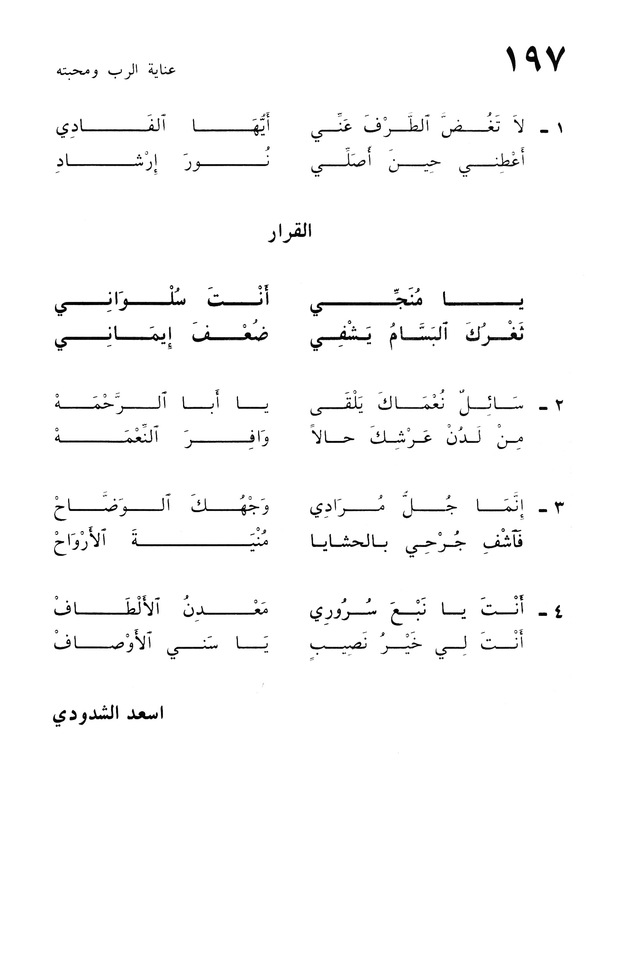 ١٩٧
عناية الرب ومحبته
١ - لاَ تَغُضَّ ٱلطَّرْفَ عَنِّي أَيُّهَا ٱلفَادِي
أَعْطِنِي حِينَ أُصَلِّي نُورَ إِرْشَادِ
القرار
يَا مُنَجِّي أَنْتَ سُلْوَانِي
ثَغْرُكَ ٱلبَسَّامُ يَشْفِي ضُعْفَ إِيمَانِي
٢ - سَائِلٌ نُعْمَاكَ يَلْقَى يا أَبا ٱلرَّحْمَهْ
مِنْ لَدُنْ عَرْشِكَ حالاً وَافِرَ النِّعْمَهْ
٣ - إِنَّمَا جُلَّ مُرَادِي وَجْهُكَ ٱلوَضَّاحْ
فَٱشْفِ جُرْحِي بالحشايا مُنْيَةَ ٱلأَرْوَاحْ
٤ - أَنْتَ يا نَبْعَ سُرُورِي مَعْدِنُ ٱلأَلْطَافْ
أَنْتَ لِي خَيْرُ نَصِيبٍ يَا سَني ٱلأَوْصَافْ
اسعد الشدودي